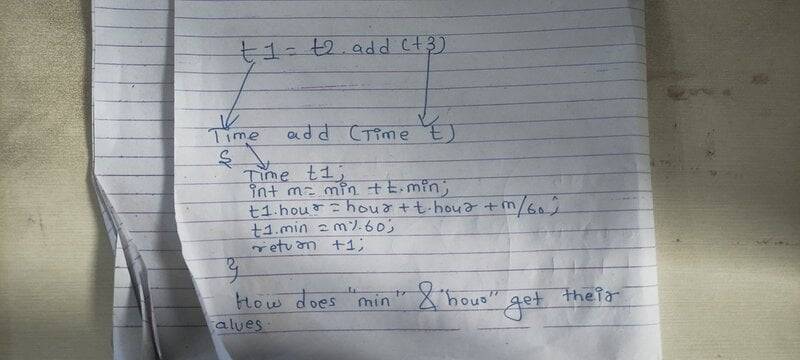 t1 = t2.add(t3)
Time add (Time t)
{
Time t1;
int m= min + t.min;
t1.hour = hour + t.hour + m/60;
t1.min = m%60;
return t1;
}
How does "min" & "hour" get their
alues.